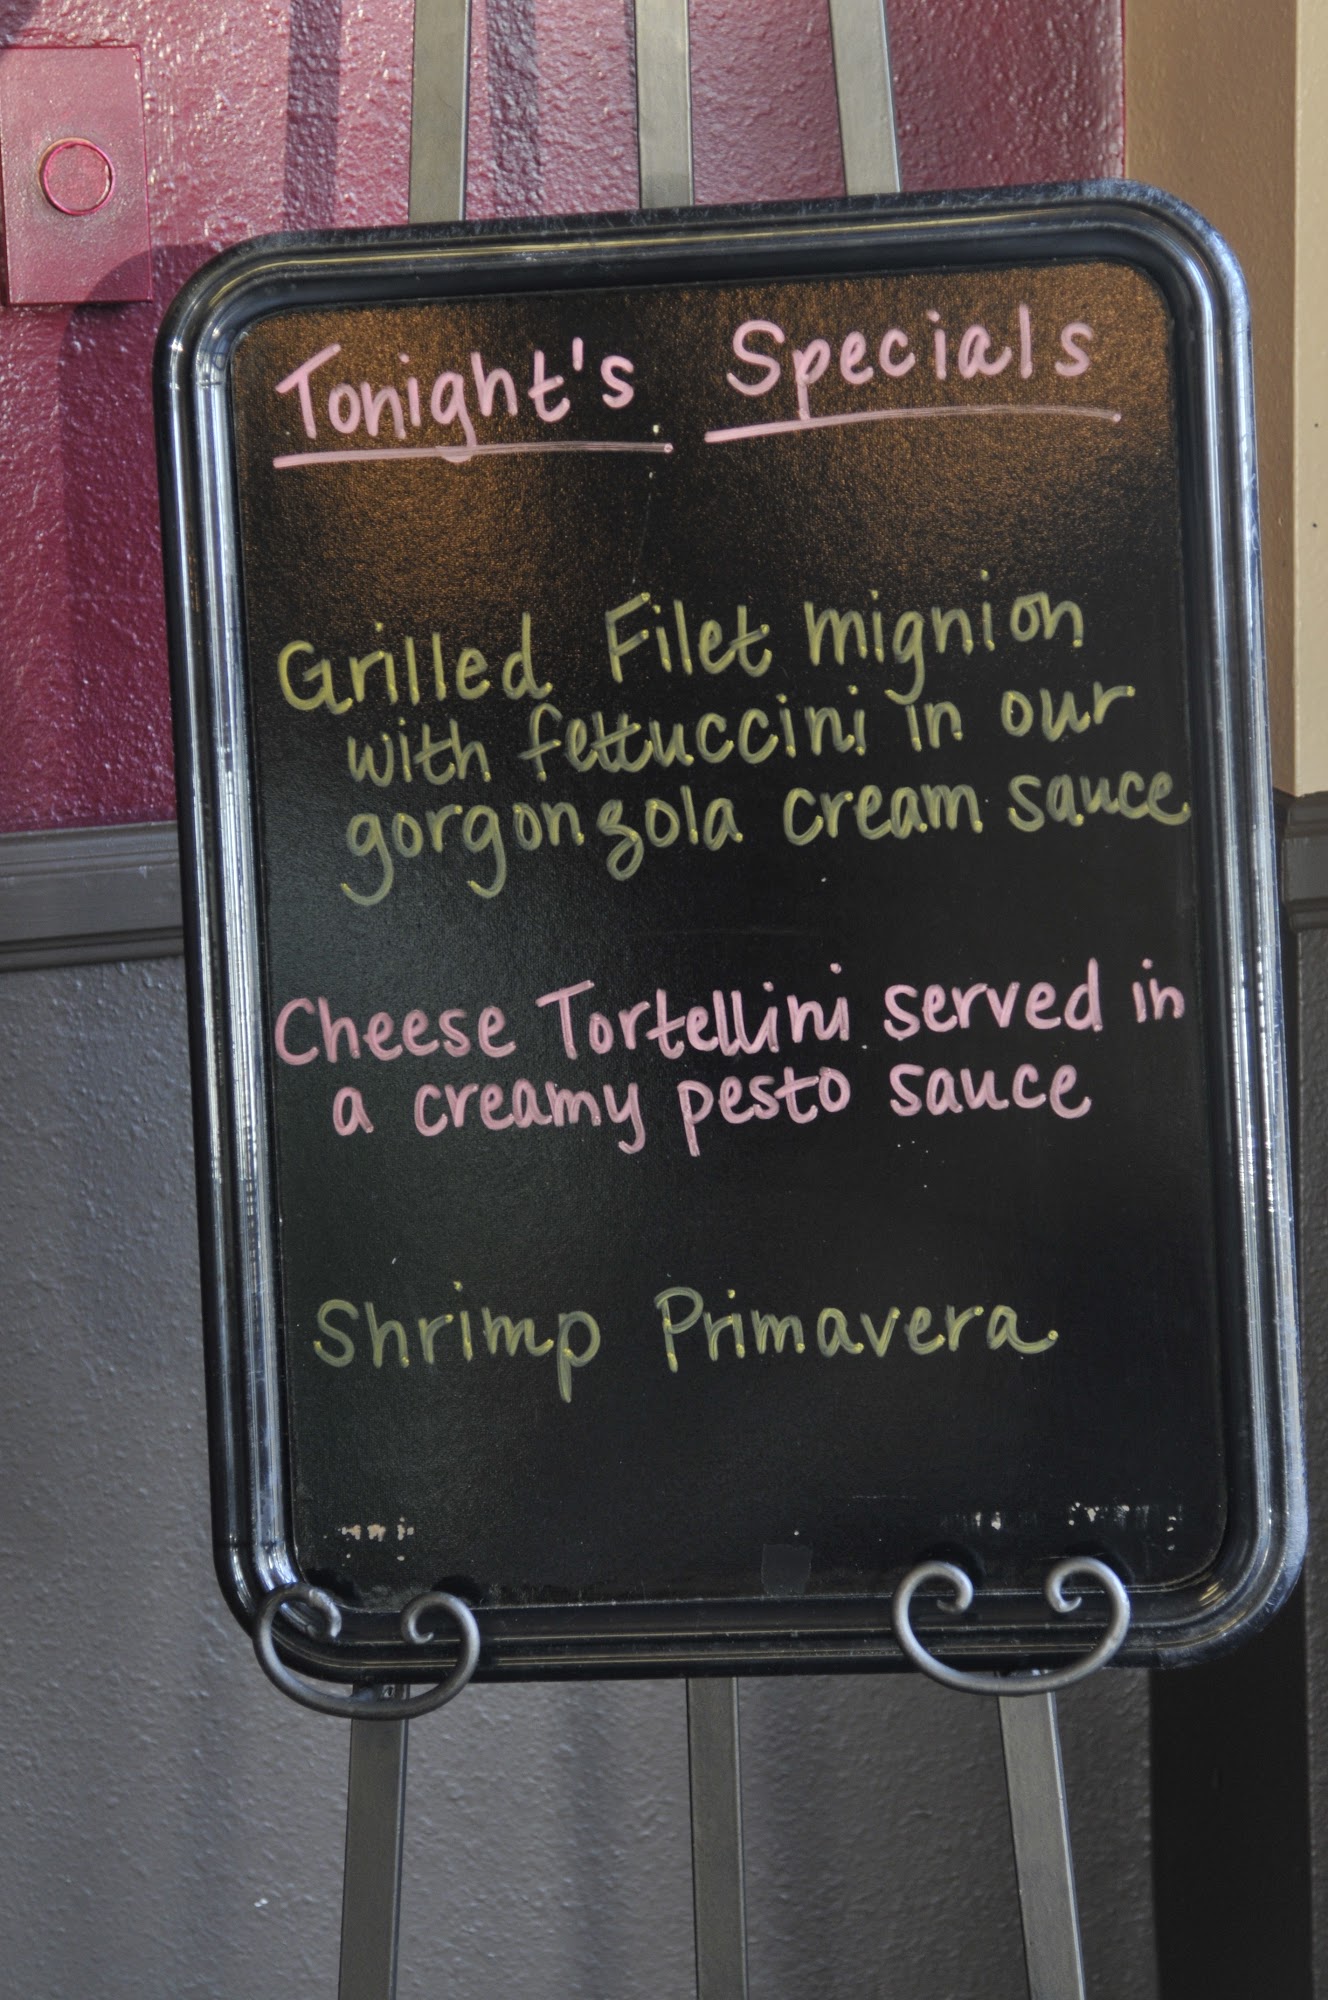 Tonight's Specials
Grilled Filet mignion
with fettuccini in our
gorgonzola cream sauce
Cheese Tortellini served in
a creamy pesto sauce
Shrimp Primavera